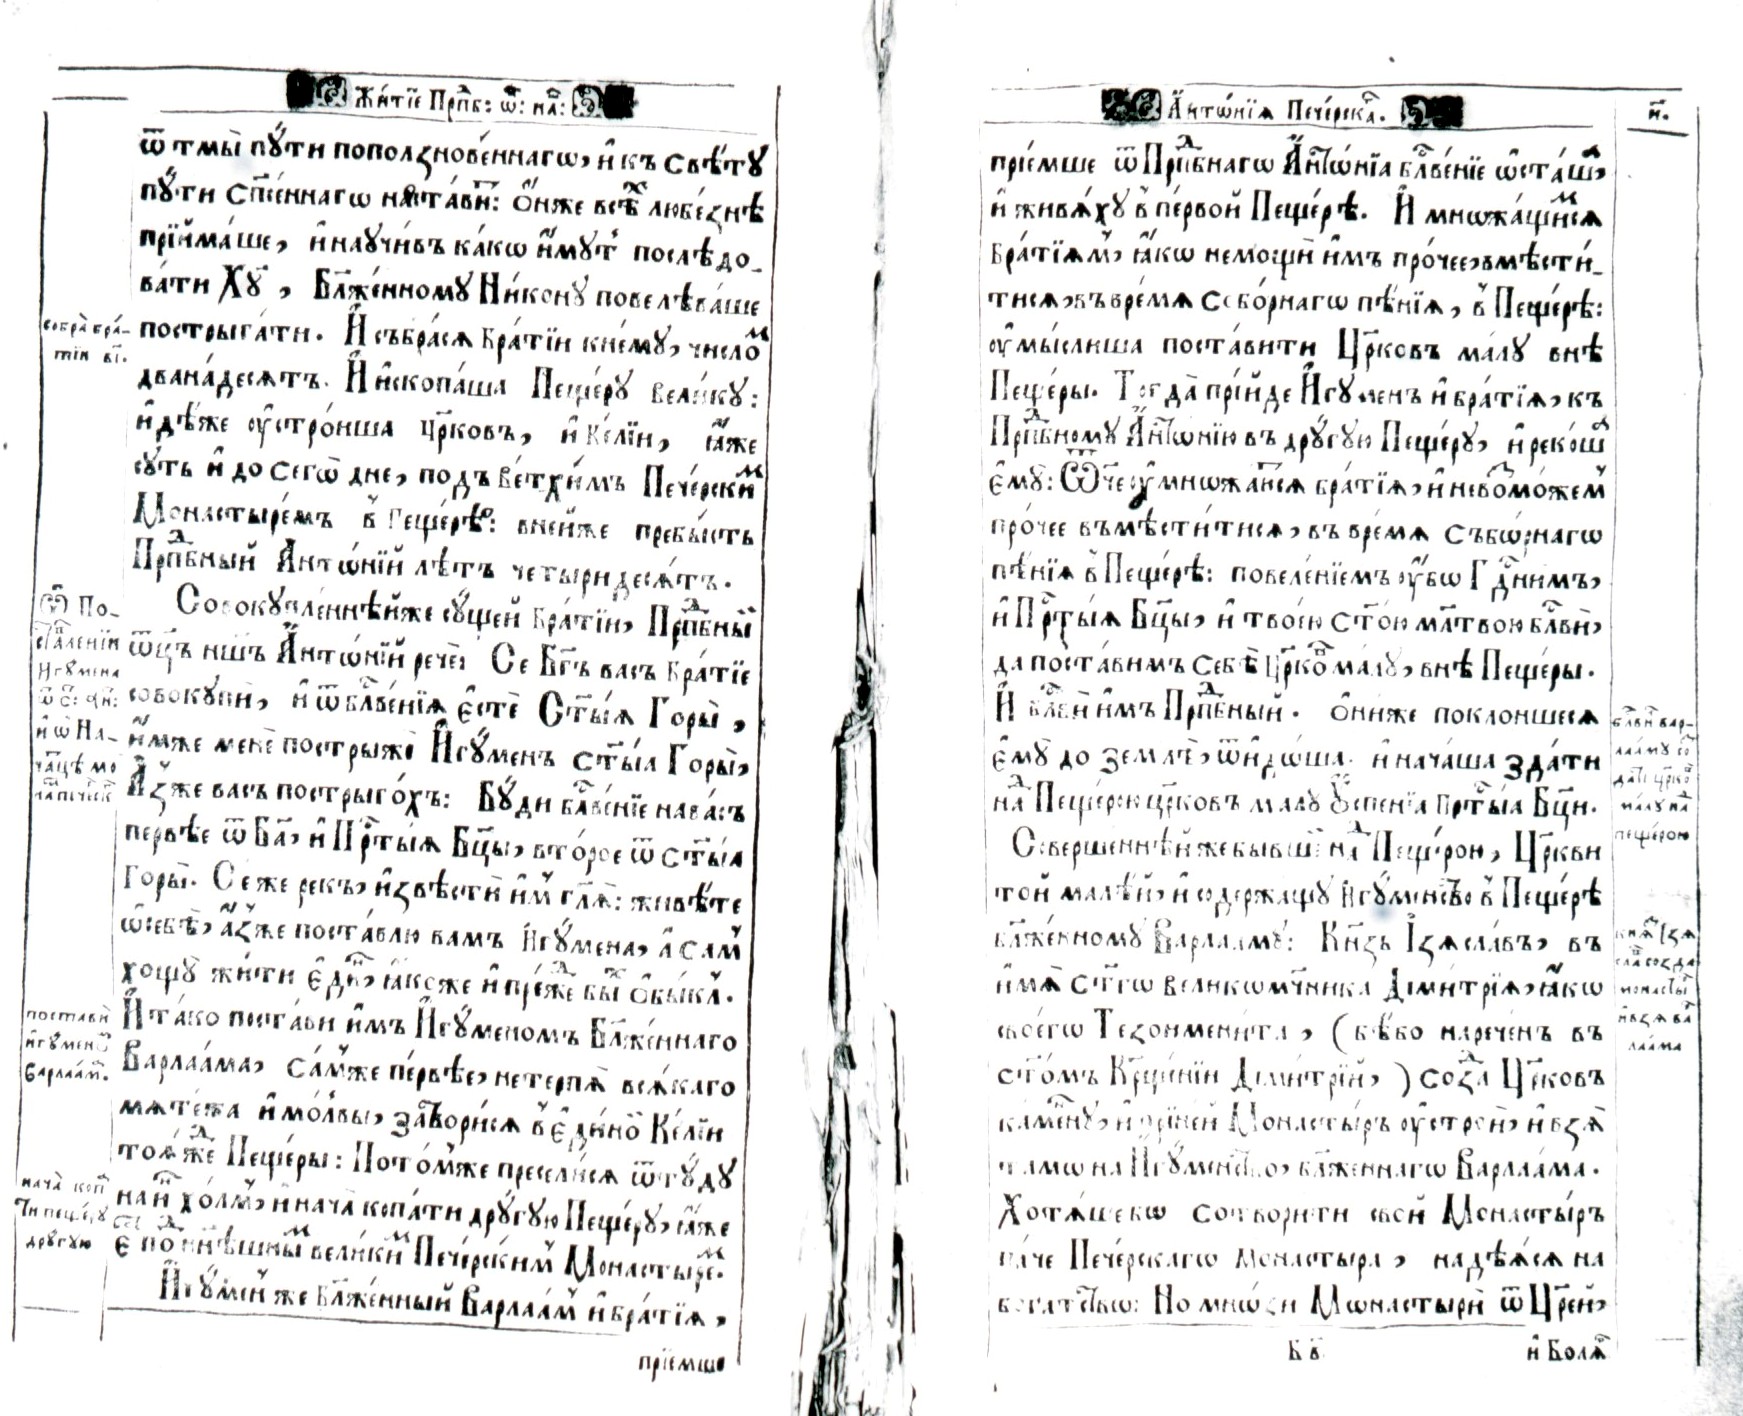 Житїе Прпⷣб: ѿ: на́:
ѿ тмы̀ пꙋ́ти поползнове́ннагѡ, и҆ къ свѣ́тꙋ
пꙋ́ти спⷭ҇еннагѡ наста́ви: Ѻ҆́нже всѣ́х любе́знѣ
прїима́ше, и҆ наꙋчи́въ ка́кѡ и҆́мꙋтъ послѣдо_
вати Хꙋ҃, Бл҃же́нномꙋ Ни́конꙋ повелѣва́ше
пострыга́ти. И҆ събра́ся бра́тїи кнемꙋ̀, число́м
двана́десятъ. И҆ и҆скопа́ша Пеще́рꙋ вели́кꙋ:
и҆дѣ́же ᲂу҆стро́иша црⷪ҇ковъ, и҆ ке́лїи, ꙗ҆́же
сꙋ́ть и҆ до сегѡ̀ дне, подъ ве́тхимъ Пече́рским
Монастыре́мъ в̾ Пеще́рѣ: вне́йже пребы́сть
Прпⷣбный Анто́нїй лѣ́тъ четы́ридеся́тъ.
Совокꙋпле́ннѣйже сꙋ́щей бра́тїи, Прпⷣбный
ѿц҃ъ нш҃ъ Анто́нїй речѐ: Се Бг҃ъ васъ бра́тїе
совокꙋпѝ, и҆ ѿ бл҃гⷭ҇ве́нїя є҆стѐ Ст҃ы́я Горы̀,
и҆́мже менѐ постры́же И҆гꙋ́менъ ст҃ы́я Горы̀,
А҆́зже васъ пострыго́хъ: Бꙋ́ди бл҃гⷭ҇ве́нїе на ва́съ
пе́рвѣе ѿ Бг҃а, и҆ Прⷭ҇ты́я Бцⷣы, второ́е ѿ ст҃ы́я
Горы̀. Се же рекъ, и҆звѣстѝ и҆м гл҃я: живѣ́те
ѡ҆ себѣ̀, а҆́зже поста́влю вамъ И҆гꙋ́мена, а҆ са́м
хощꙋ̀ жи́ти є҆ди́н, ꙗ҆́коже и҆ пре́жде бых ѡ҆бы́кл.
И҆ та́ко поста́ви и҆́мъ И҆гꙋ́меномъ Бл҃же́ннаго
Варлаа́ма, са́мже пе́рвѣе, нетерпя̀ вся́каго
мяте́жа и҆ мо́лвы, затвори́ся в̾ є҆ди́ной Ке́лїи
тоя́же Пеще́ры: Пото́мже пресели́ся ѿтꙋ́дꙋ
на и҆н хо́лм, и҆ нача̀ копа́ти дрꙋгꙋ́ю Пеще́рꙋ, ꙗ҆́же
є҆сть под нн҃ѣшным вели́ким Пече́рским Монастыре́м.
И҆гꙋ́мен же Бл҃же́нный Варлаа́м и҆ бра́тїя,
прїе́мше
собра̀ бра́_
тїи вї҃.
Ѽ По_
ставле́нїи
И҆гꙋ́мена
и҆ ѡ На_
поставѝ
и҆гꙋ́меном
Варлаа́м.
нача̀ копа́
ти пеще́рꙋ
дрꙋгꙋ́ю
А҆нто́нїя Пече́рскаⷢ.
н҃.
прїе́мше ѿ Прпⷣбнагѡ А҆нто́нїа бл҃гⷭ҇ве́нїе ѡ҆ста́ша,
и҆ живя́хꙋ в̾ пе́рвой Пеще́рѣ. И҆ мно́жащимся
бра́тїям, ꙗ҆́кѡ немощѝ и҆́мъ про́чее, вмѣсти́_
тися, въ вре́мя собо́рнагѡ пѣ́нїя, в̾ Пеще́рѣ:
ᲂу҆мы́слиша поста́вити Цр҃ковъ ма́лꙋ внѣ
Пеще́ры. Тогда̀ прїи́де И҆гꙋ́менъ и҆ бра́тїя, къ
Прпⷣбномꙋ А҆нто́нїю въ дрꙋгꙋ́ю Пеще́рꙋ, и҆ реко́ша
є҆мꙋ̀: Ѿче ᲂу҆мно́жися бра́тїя, и҆ невозмо́жем
про́чее въмѣсти́тися, въ вре́мя съборнагѡ
пѣ́нїя в̾ Пеще́рѣ: повеле́нїемъ ᲂу҆́бѡ Гдⷭ҇нимъ,
и҆ Прⷭ҇ты́я Бцⷣы, и҆ твое́ю ст҃о́ю мл҃твою бл҃гвѝ,
да поста́вимъ себѣ̀ црⷪ҇ков ма́лꙋ, внѣ Пеще́ры.
И҆ бл҃гвѝ и҆́мъ Прпⷣбный. Ѻ҆ни́же поклоншеся
є҆мꙋ̀ до землѣ̀, ѿидо́ша. и҆ нача́ша зда́ти
над Пеще́рою црⷪ҇ковъ ма́лꙋ Оу҆спе́нїа Прⷭ҇ты́я Бцⷣи.
Соверше́ннѣйже бы́вшей над Пеще́рою, Цр҃кви
той ма́лѣй, и҆ содержа́щꙋ И҆гꙋ́менство в̾ Пеще́рѣ
бл҃же́нномꙋ Варлаа́мꙋ: Кн҃зь І҆зясла́въ, въ
и҆́мя ст҃гѡ великомч҃нка Дими́трїя, ꙗ҆́кѡ
своегѡ̀ Тезоимени́та, (бѣ́ бо нарече́нъ въ
ст҃о́мъ Крⷭ҇ще́нїи Дими́трїй,) созда̀ Цр҃ковъ
ка́меннꙋ, и҆ при не́й Монасты́ръ ᲂу҆стро́и, и҆ взя̀
та́мѡ на И҆гꙋ́менство, бл҃же́ннагѡ Варлаа́ма.
Хотя́ше бѡ сотвори́ти сво́й Монасты́ръ
па́че Пече́рскагѡ монастыра̀, надѣ́яся на
бога́тство: Но мно́зи Монастырѝ ѿ Цр҃е́й,
Б в҃
и҆ Боля́р
бл҃гвѝ вар_
лаа́мꙋ со_
зда́ти црⷪ҇ко
ма́лꙋ над
пеще́рою
кн҃я І҆зя
сла́в созда̀
монасты́р
и҆ взя ва́р
лаама